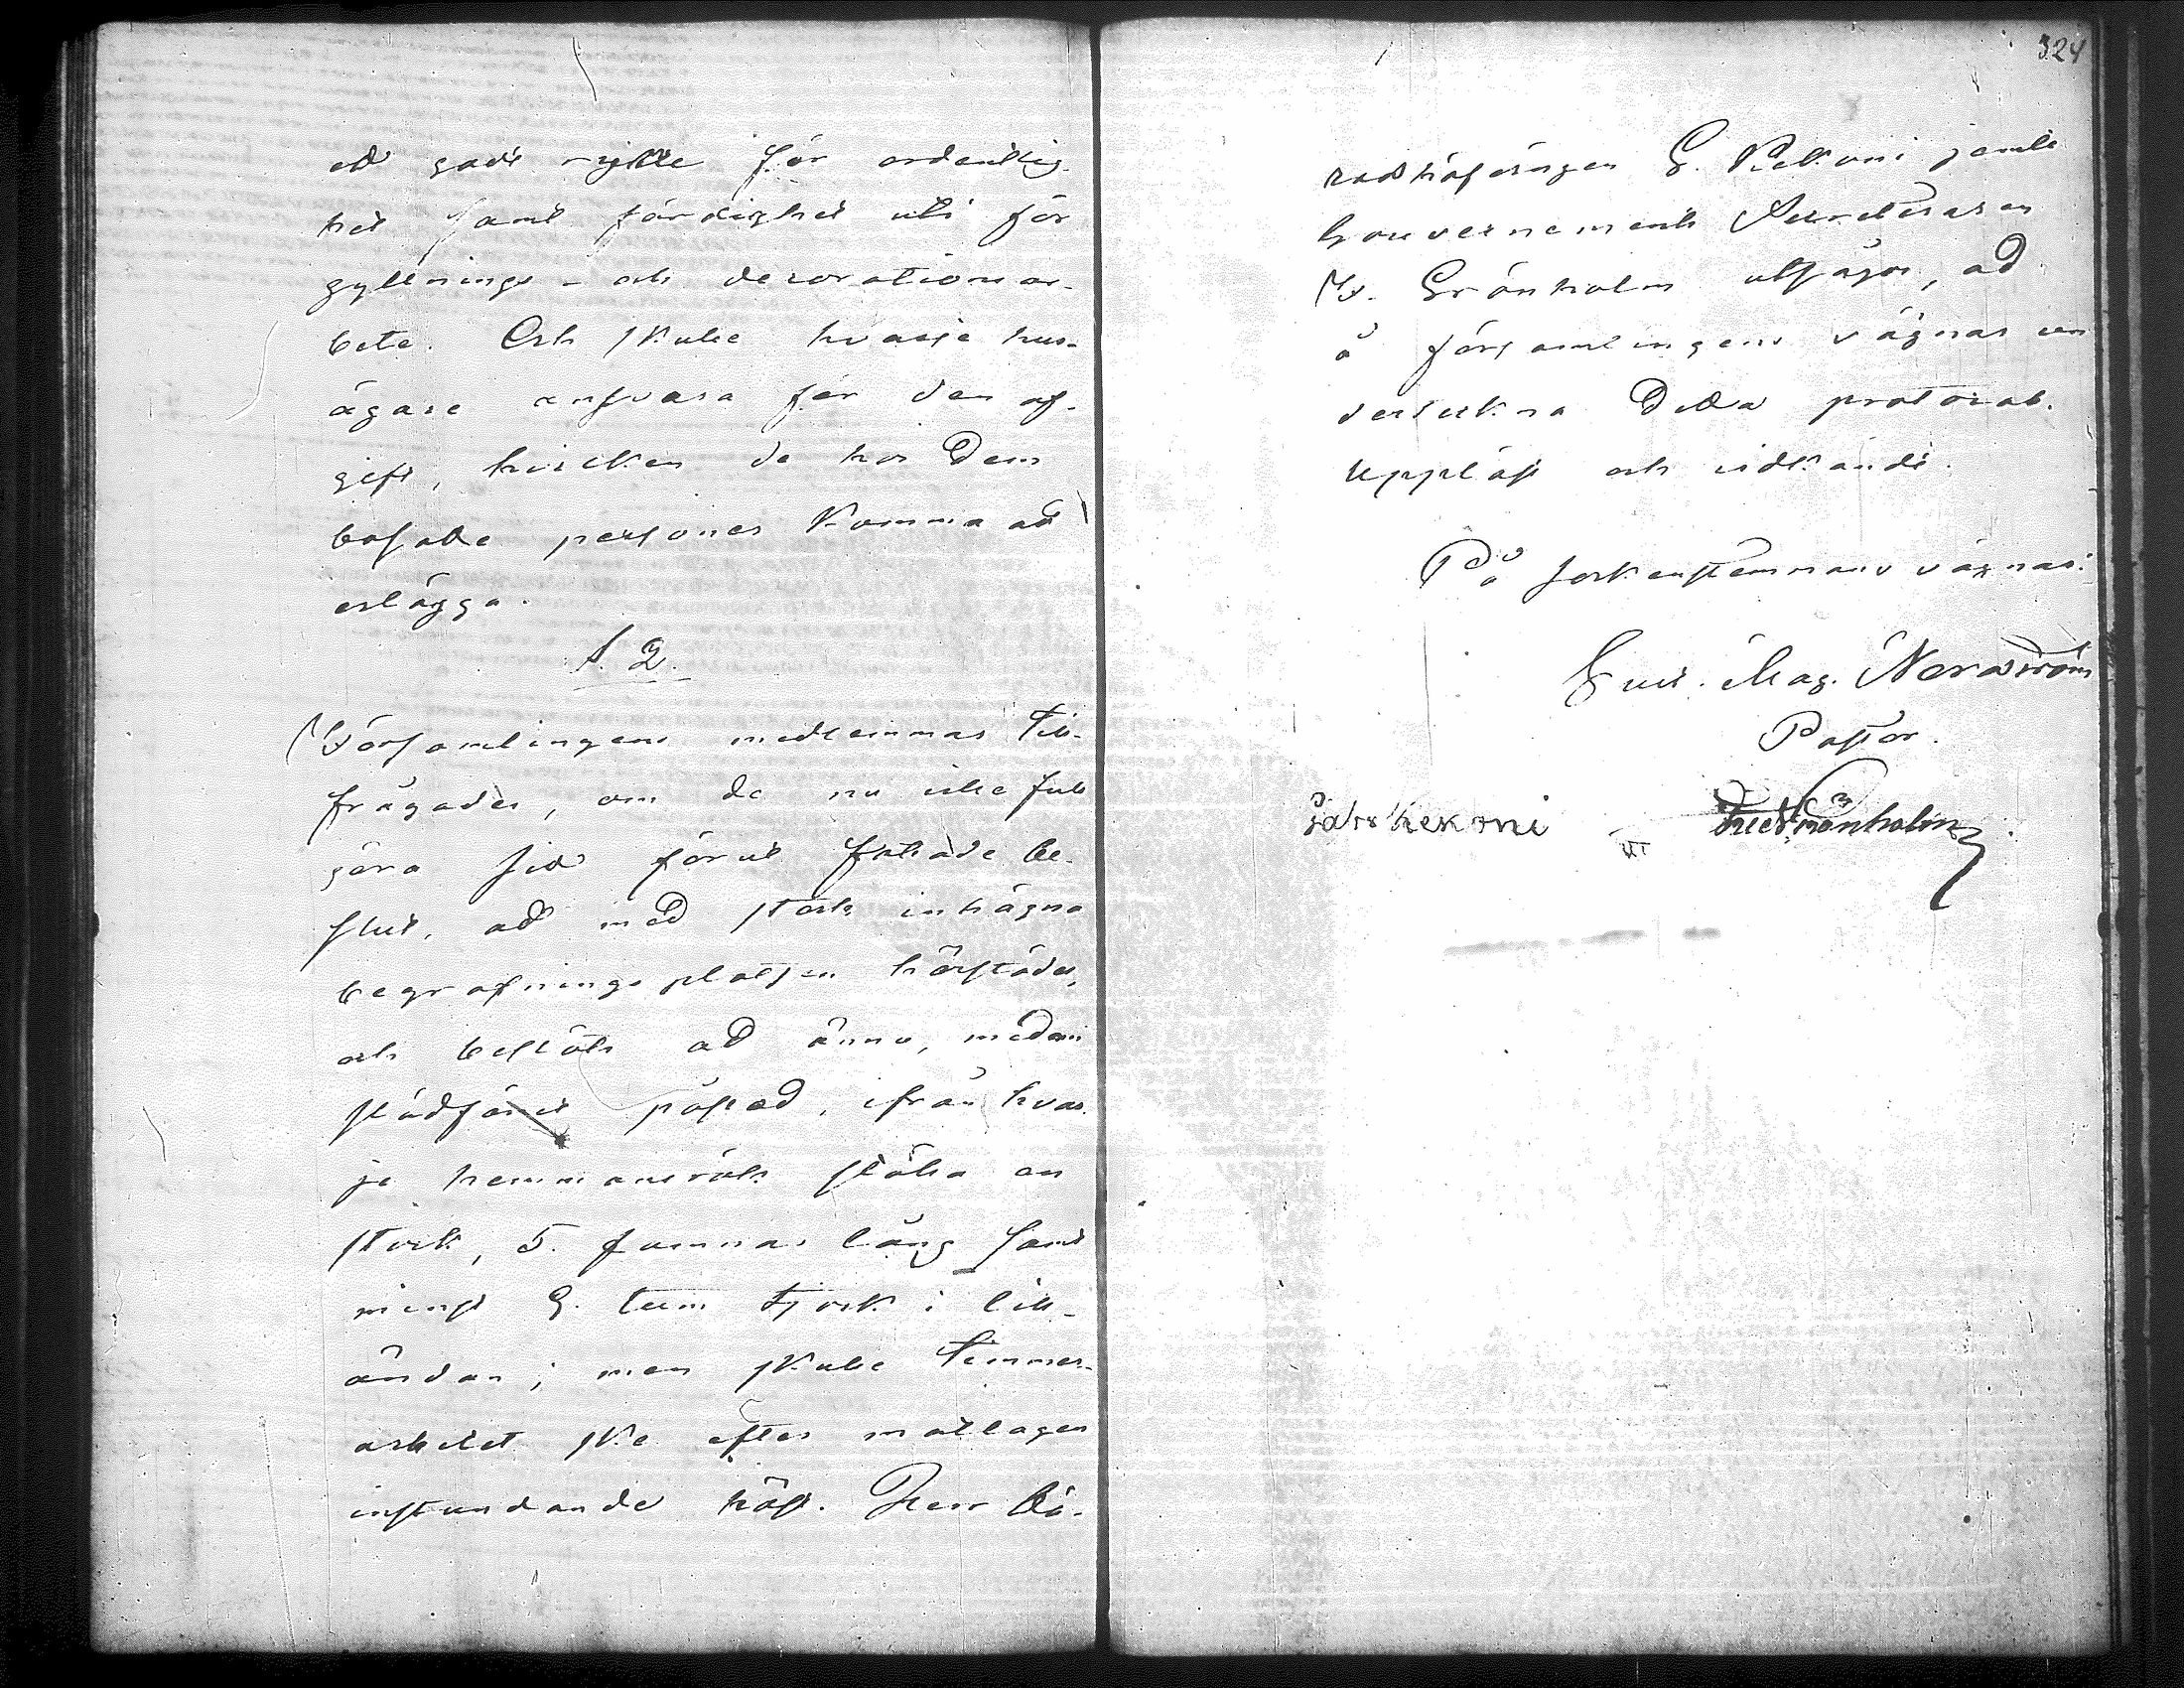 ett godt rykte för ordentlig-
het samt färdighet uti för
gyllnings- och decorationsar-
bete. Och skulle hvarje hus-
ägare ansvara för den af-
gift, hvilken de hos dem
bosatte personer komma att
erlägga.
§. 2.
Församlingens medlemmar till-
frågades, om de nu ville full
göra sitt förut fattade be-
slut, att med stock inhägna
begrafningsplatsen härstädes,
och beslöts att ännu, medan
slädföret påstod, ifrån hvar-
je hemmansrök ställa en
stock, 5. famnar lång samt
minst 9. tum tjock i lill-
ändan; men skulle timmer-
arbetet ske efter mottagen
instundande höst. Herr Hä-
324
radshöfdingen G. Kekoni jemte
Gouvernements Secreteraren
F. Grönholm utsågos, att
å församlingens vägnar un
derteckna detta protocoll.
Uppläst och vidkändt.
På sockenstemmans vägnar:
Gust. Mag. Nordström
Pastor.
Kekoni Grönholm